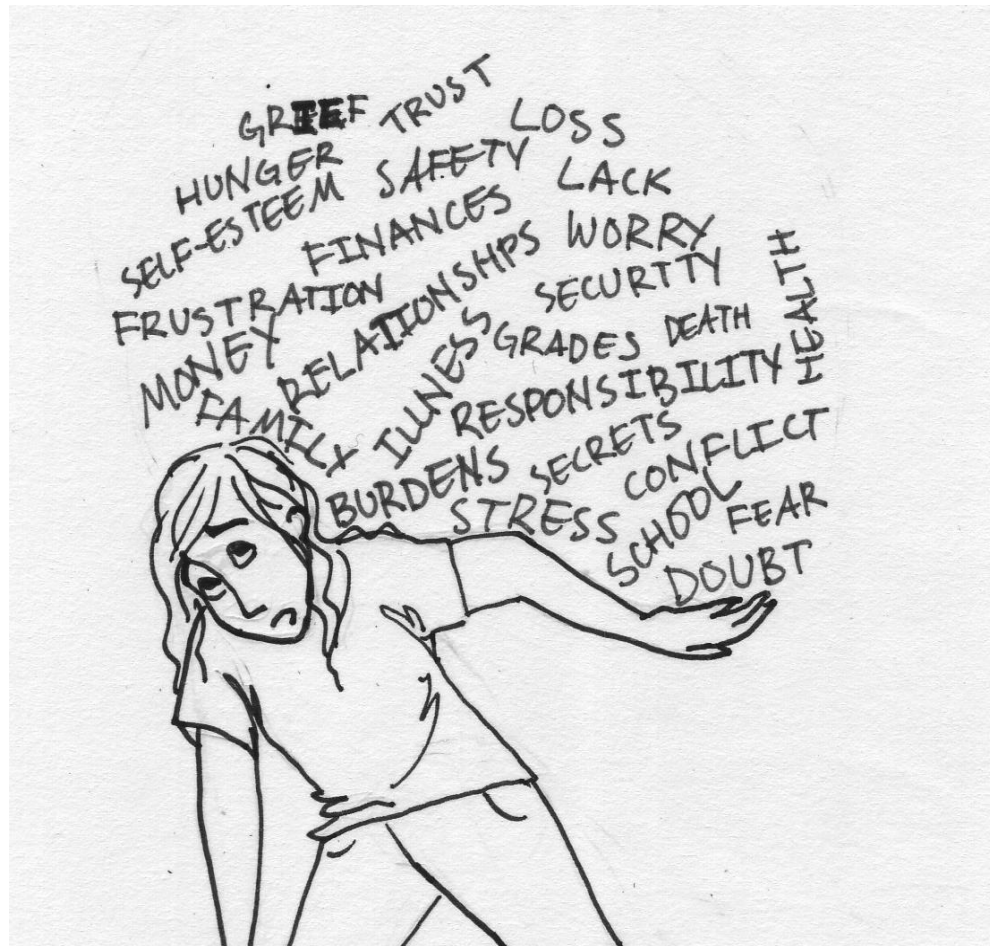 GRIEF TRUST LOSS
HUNGER SAFETY LACK
SELF-ESTEEM FINANCES WORRY
FRUSTRATION RELATIONSHPS SECURITY HEALTH
MONEY ILLNESS GRADES DEATH
FAMILY RESPONSIBILITY
BURDENS SECRETS CONFLICT
STRESS SCHOOL FEAR
DOUBT